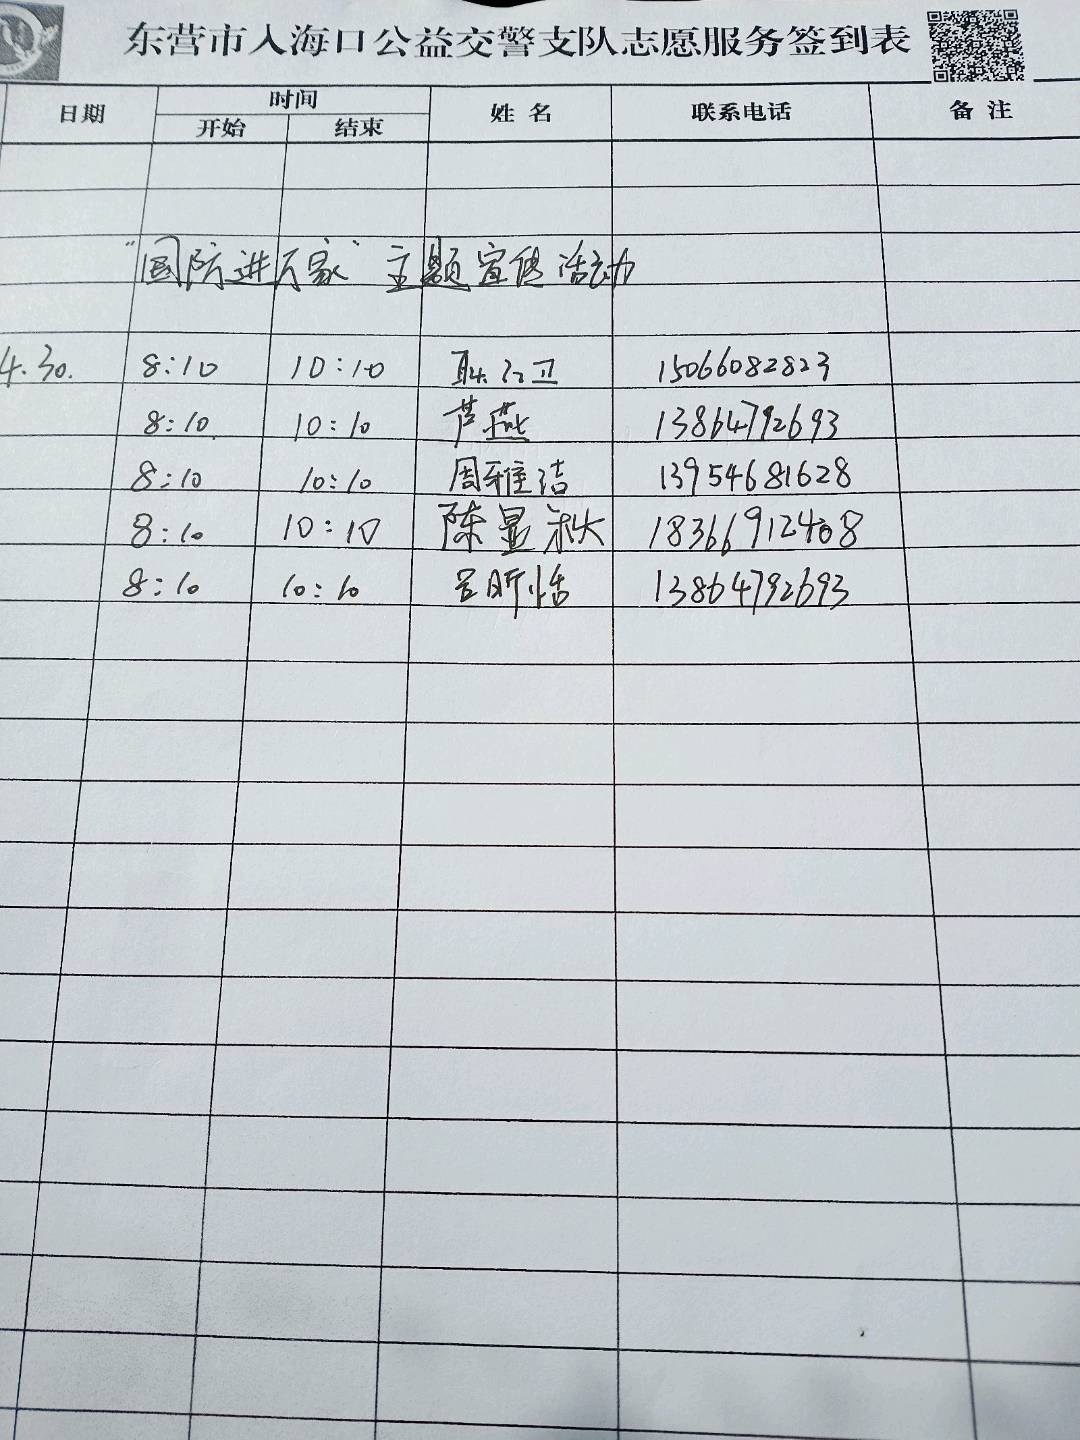 东营市入海口公益交警支队志愿服务签到表
日期 时间 姓名 联系电话 备注
开始 结束
"国防进万家"主题宣传活动
4.30. 8:10 10:10 15066082823
8:10 10:10 芦燕 13864792693
8:10 10:10 周雅洁 13954681628
8:10 10:10 陈显秋 18366912408
8:10 10:10 13864792693